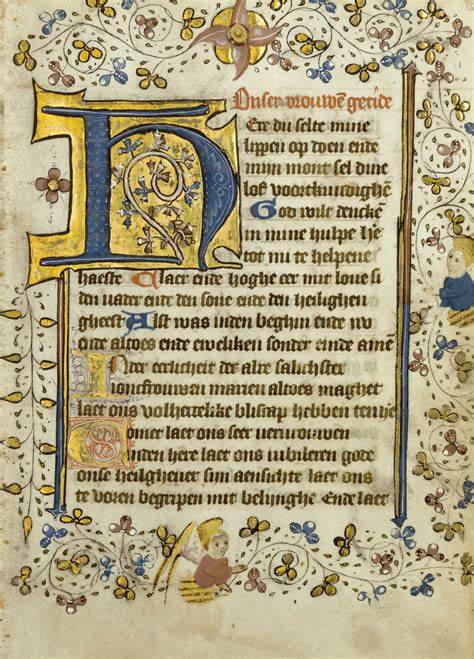 Onser vrouwē getide
HEre du selte mine
lippen op doen ende
mijn mont sel dine
lof voortkundighē
God wilt denckē
in mine hulpe he
tot mi te helpene
haeste Claer ende hoghe eer mit loue si
den vader ende den sone ende den heilighen
gheest Alst was inden beghin ende nv
ende altoes ende eweliken sonder einde amē
Inder eerlicheit der alre salichster
ioncfrouwen marien altoes maghet
laet ons volhertelike bliscap hebben
Comet laet ons seer vervrouwen
inden here laet ons iubileren gode
onse heilghever sijn aensichte laet ons
te voren begripen mit belijnghe Ende laet